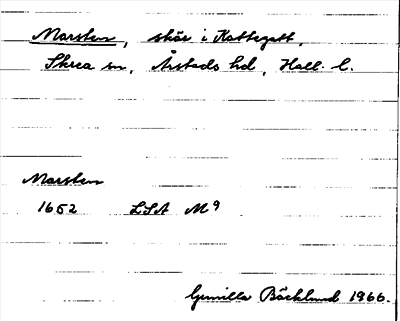 Marsten, skär i Kattegatt,
Skrea sn, Årstads hd, Hall. l.
Marsten
1652 LSA M9
Gunilla Bäcklund 1966.